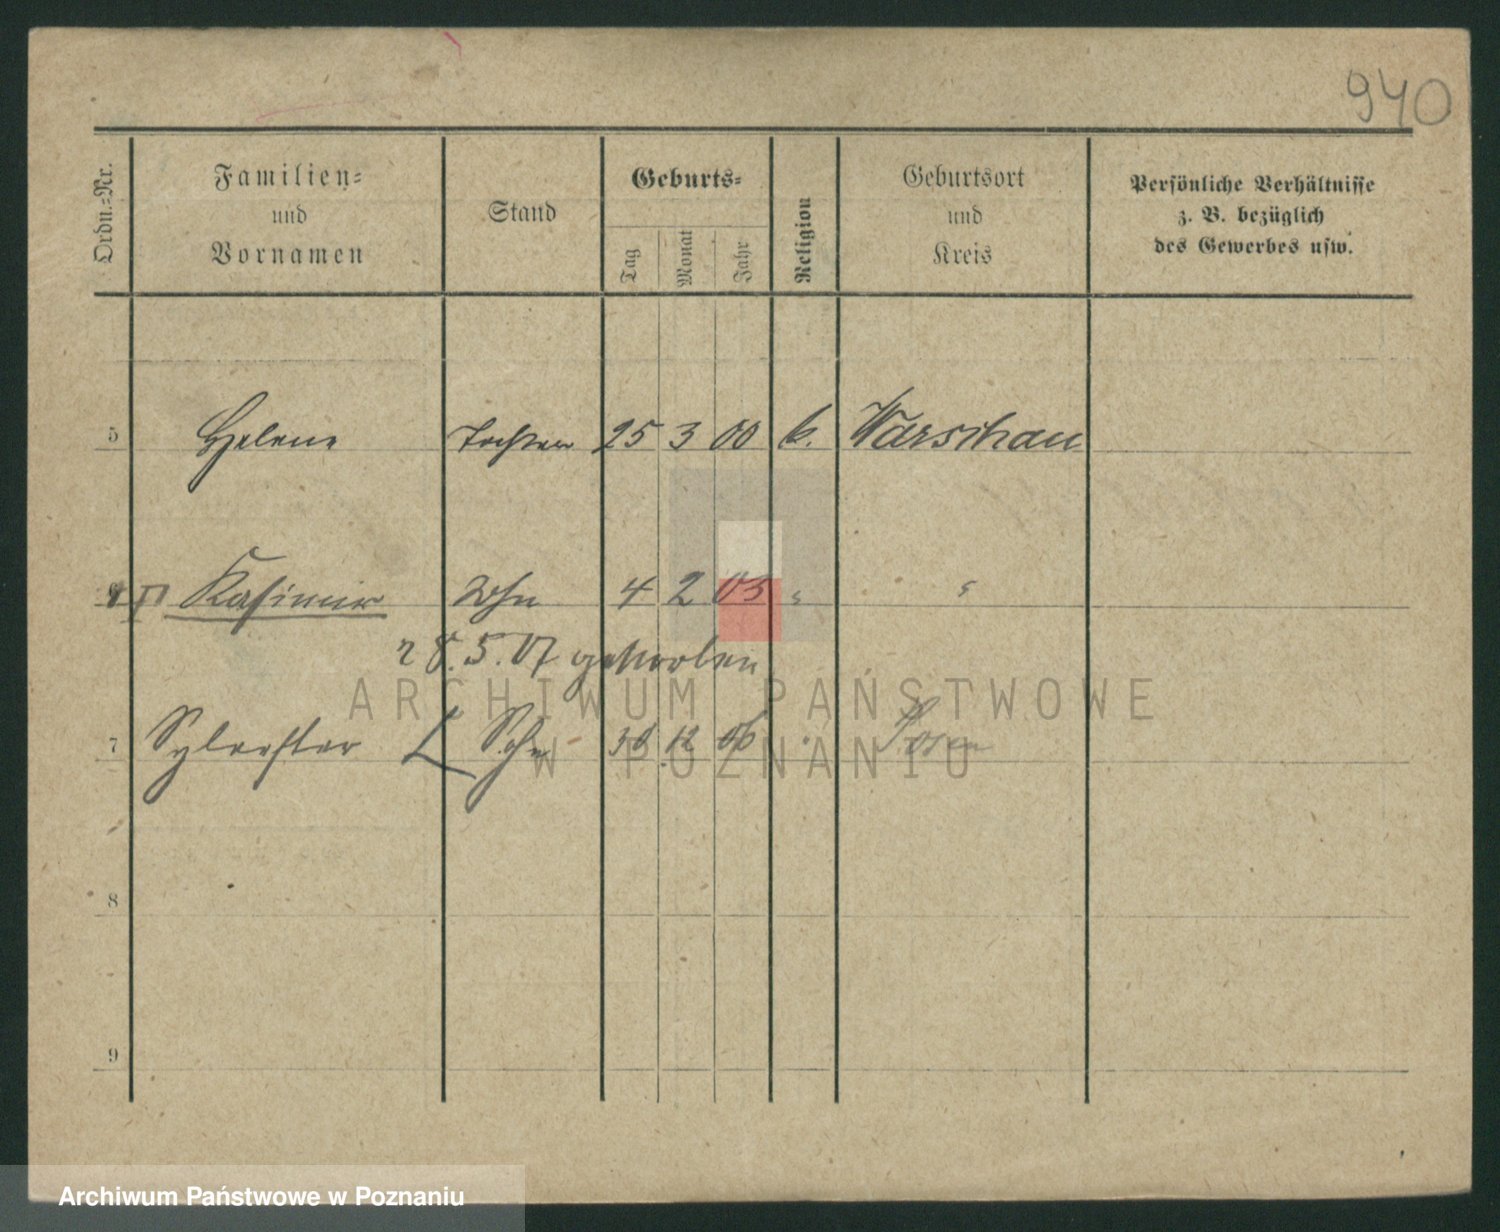 940
Ordn.-Nr. Familien- und Vornamen Stand Geburts- Tag Monat Jahr Religion Geburtsort und Kreis Persönliche Verhältnisse z. B. bezüglich des Gewerbes usw.
5 Helene Tochter 25 3 00 k. Warschau
6 Kasimir Sohn 4 2 05 " "
28.5.07 gestorben
ARCHIWUM PAŃSTWOWE
7 Sylvester Sohn 30 12 06 " Posen
W POZNANIU
8
9
Archiwum Państwowe w Poznaniu